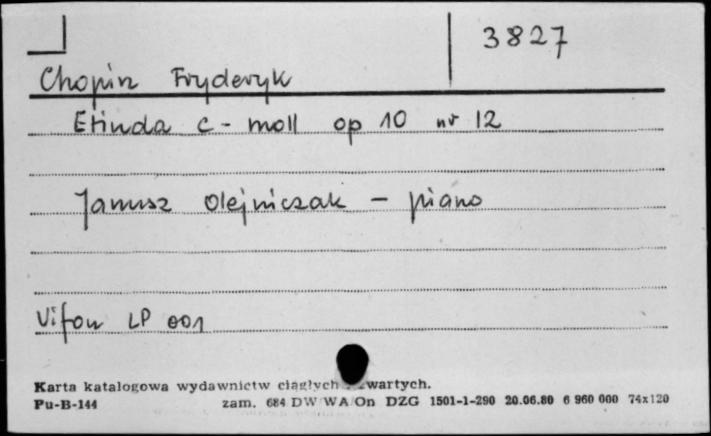 3827
Chopin Fryderyk
Etiuda c-moll op 10 nr 12
Janusz Olejniczak - piano
Vifon LP 001
Karta katalogowa wydawnictw ciągłych i zwartych.
Pu-B-144 zam. 684 DW WA/On DZG 1501-1-290 20.06.80 6 960 000 74x120